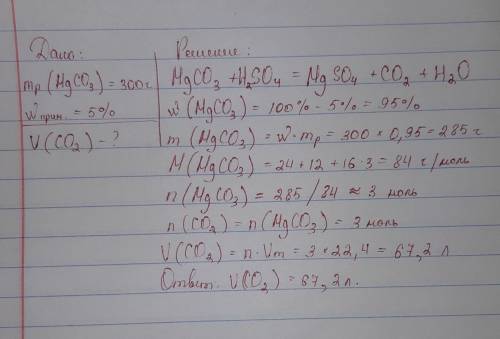 Дано:
mр (MgCO₃) = 300 г
ω прим. = 5%
V(CO₂) - ?
Решение:
MgCO₃ + H₂SO₄ = MgSO₄ + CO₂ + H₂O
ω (MgCO₃) = 100% - 5% = 95%
m (MgCO₃) = ω · mр = 300 × 0,95 = 285 г
M(MgCO₃) = 24 + 12 + 16 · 3 = 84 г/моль
n(MgCO₃) = 285 / 84 ≈ 3 моль
n(CO₂) = n(MgCO₃) = 3 моль
V(CO₂) = n · Vm = 3 × 22,4 = 67,2 л
Ответ. V(CO₂) = 67,2 л.